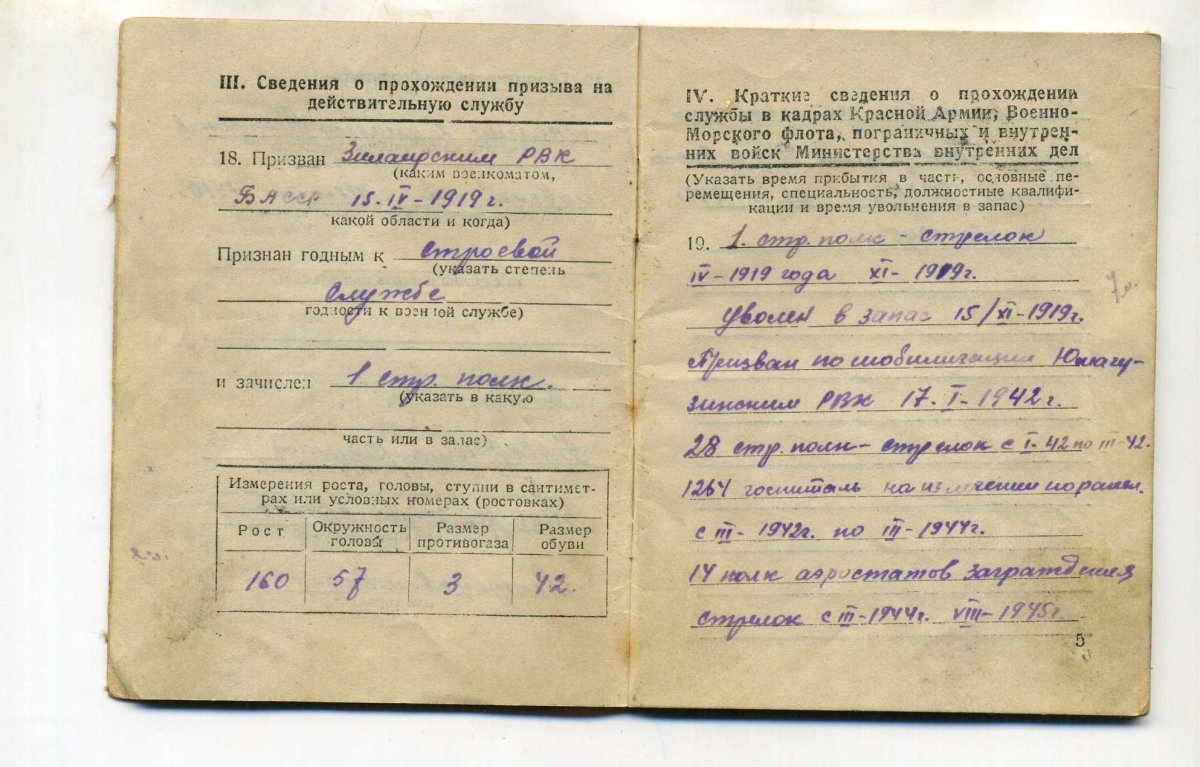 III. Сведения о прохождении призыва на
действительную службу
18. Призван Зилаирским РВК
(каким военкоматом,
БАССР 15.IV-1919 г.
какой области и когда)
Признан годным к строевой
(указать степень
службе
годности к военной службе)
и зачислен 1 стр. полк.
(указать в какую
часть или в запас)
Измерения роста, головы, ступни в сантимет-
рах или условных номерах (ростовках)
Рост Окружность головы Размер противогаза Размер обуви
160 57 3 42.
IV. Краткие сведения о прохождении
службы в кадрах Красной Армии, Военно-
Морского флота, пограничных и внутрен-
них войск Министерства внутренних дел
(Указать время прибытия в часть, основные пе-
ремещения, специальность, должностные квалифи-
кации и время увольнения в запас)
19. 1. стр. полк - стрелок
IV-1919 года XI-1919г.
7м.
Уволен в запас 15/XI-1919г.
Призван по мобилизации Юмагу-
зинским РВК 17.I-1942г.
28 стр. полк - стрелок с I-42 по III-42.
1264 госпиталь на излечении по ранен.
с III-1942г. по III-1944г.
14 полк аэростатов заграждения
стрелок с III-1944г. VIII-1945г.
5